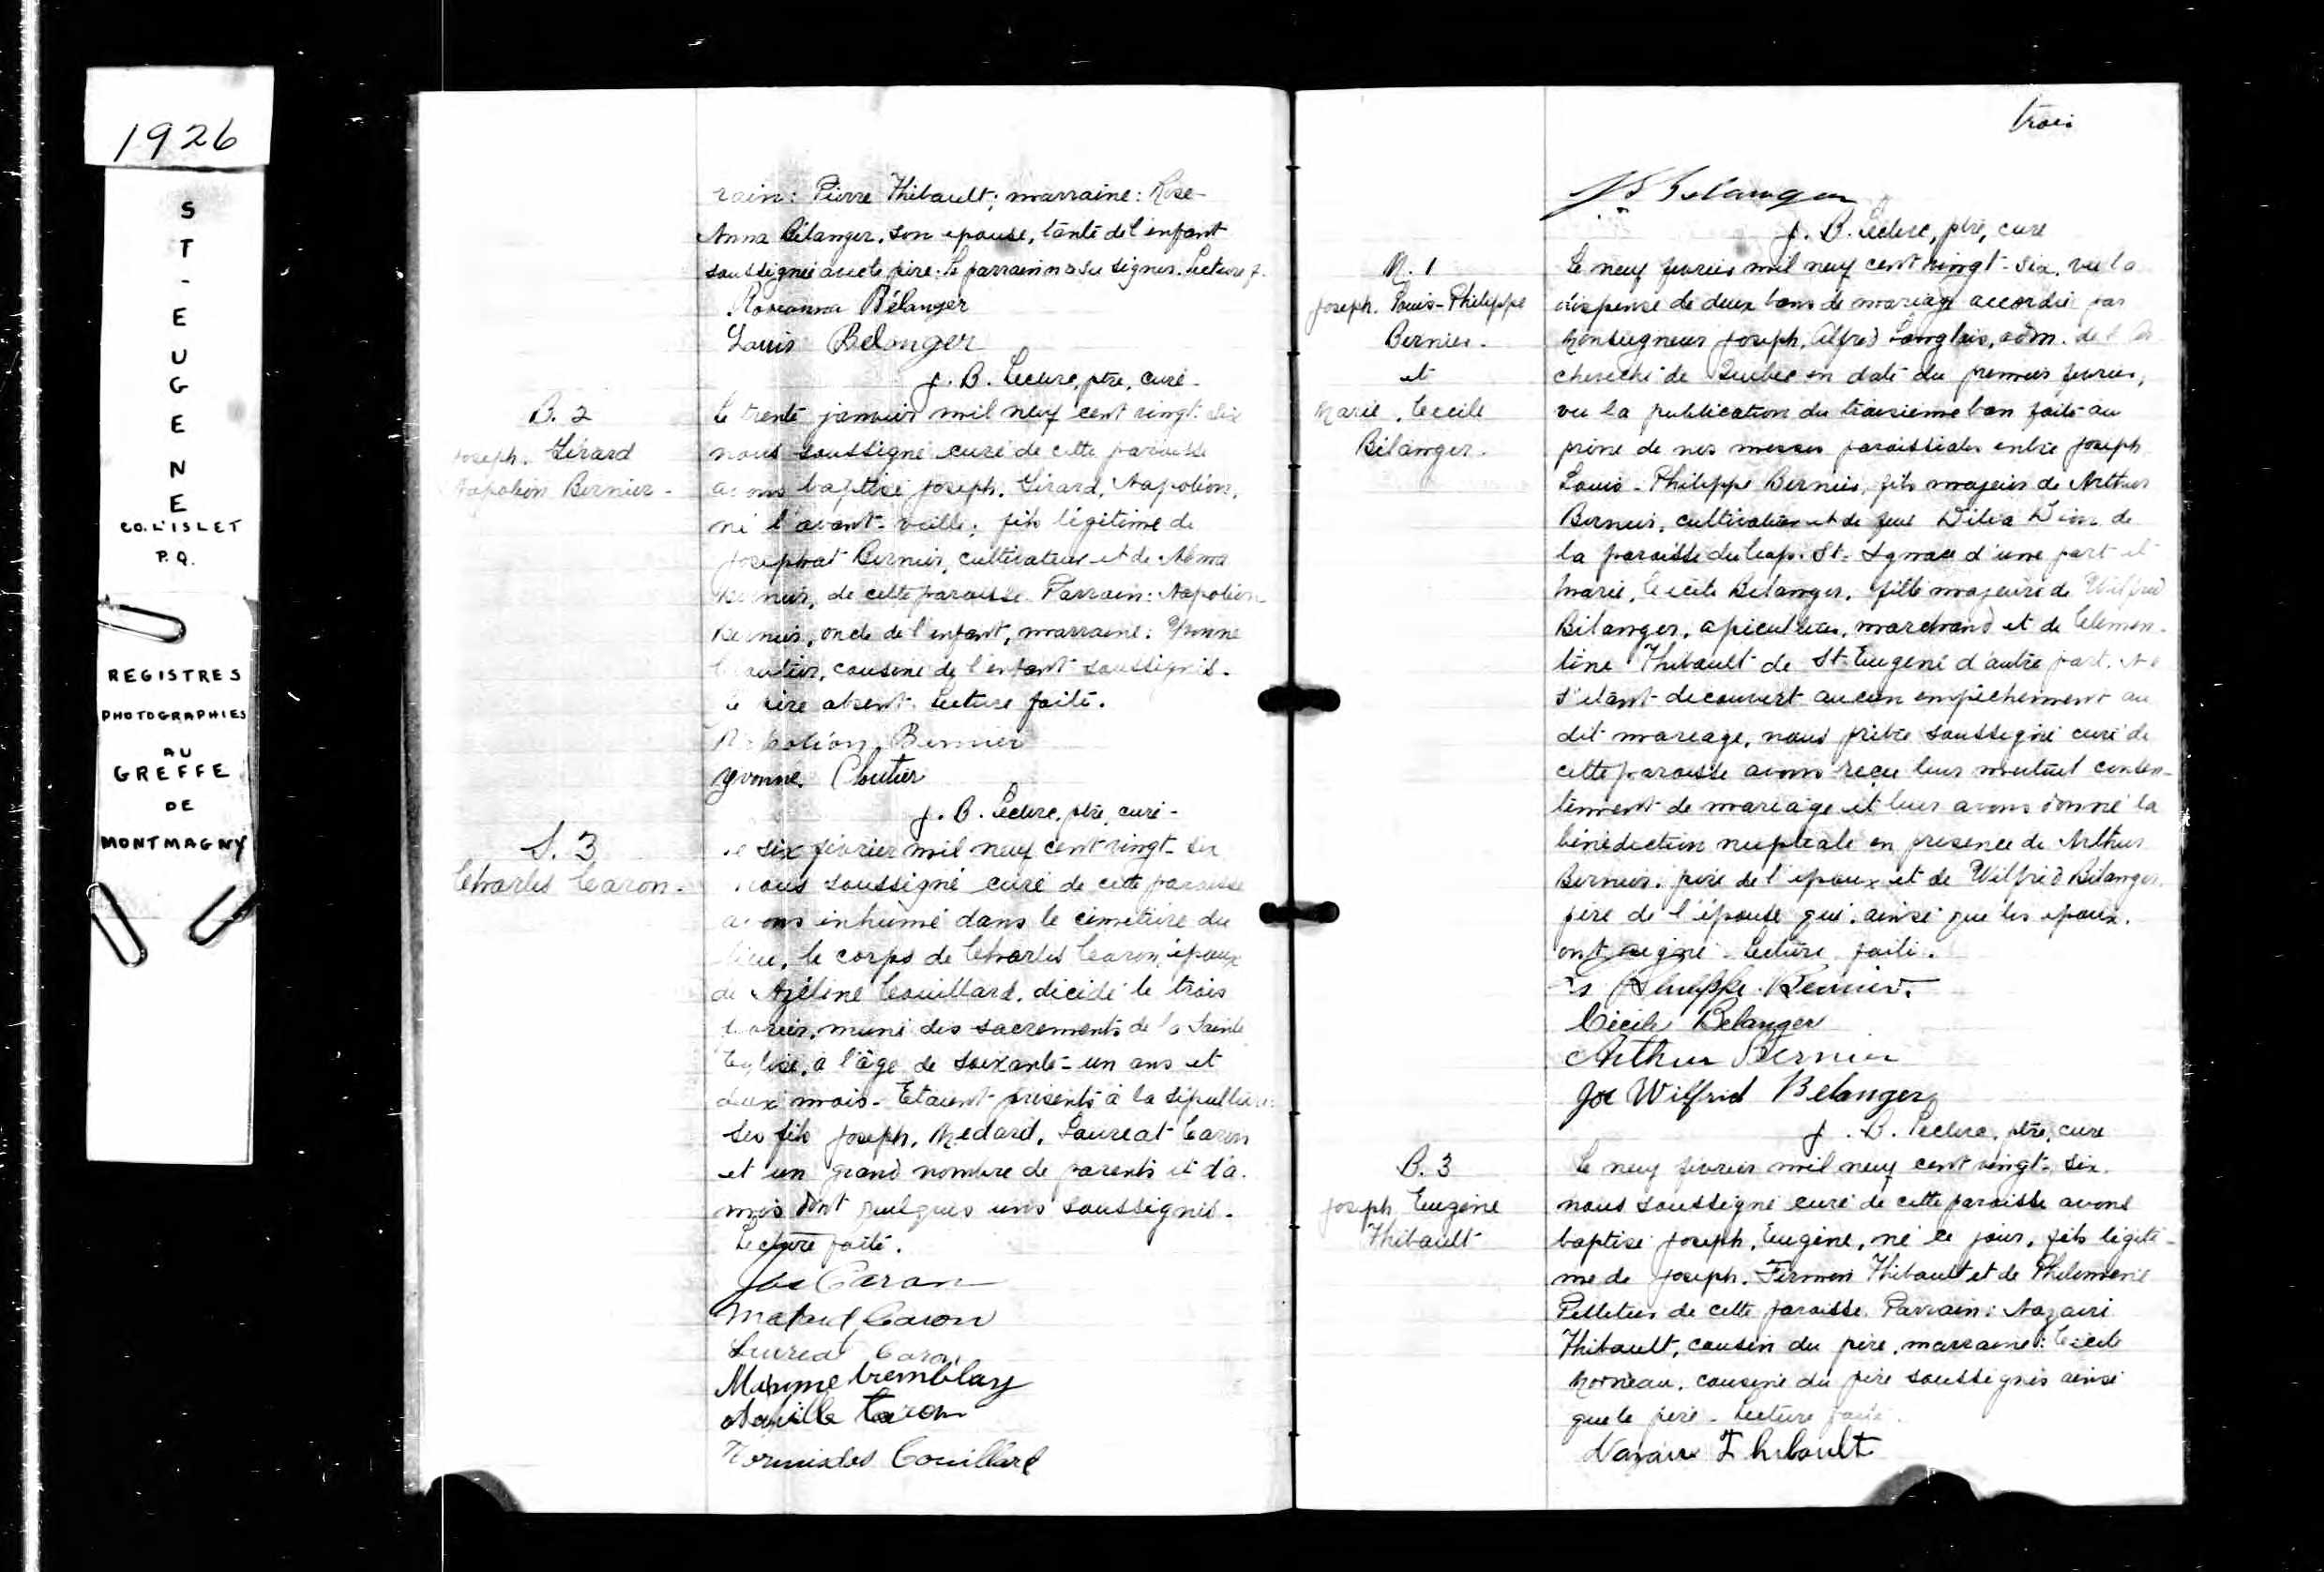 1926
ST-EUGENE
CO. L'ISLET
P.Q.
REGISTRES
PHOTOGRAPHIES
AU
GREFFE
DE
MONTMAGNY
rain: Pierre Thibault; marraine: Rose-
Anna Bélanger, son épouse, tante de l'enfant
soussignée avec le père. Le parrain n'a su signer. Lecture f.
Roseanna Bélanger
Louis Belanger
J. B. Leclerc, ptre, curé.
B. 2
Joseph. Gérard
Napoléon Bernier.
Le trente janvier mil neuf cent vingt-six
nous soussigné curé de cette paroisse
avons baptisé Joseph, Gérard, Napoléon,
né l'avant-veille, fils légitime de
Josephat Bernier, cultivateur et de Alma
Bernier, de cette paroisse. Parrain: Napoléon
Bernier, oncle de l'enfant, marraine: Yvonne
Cloutier, cousine de l'enfant soussignés.
Le père absent. Lecture faite.
Napoléon Bernier
Yvonne Cloutier
J. B. Leclerc, ptre, curé.
S. 3
Charles Caron.
Le six février mil neuf cent vingt-six
nous soussigné curé de cette paroisse
avons inhumé dans le cimetière du
lieu, le corps de Charles Caron, époux
de Azéline Couillard, décédé le trois
février, muni des sacrements de la Sainte
Eglise, à l'âge de soixante-un ans et
deux mois. Etaient présents à la sépulture:
Ses fils Joseph, Médard, Lauréat Caron
et un grand nombre de parents et d'a-
mis dont quelques uns soussignés.
Lecture faite.
Joe Caron
Caron
Caron
Maxime tremblay
Caron
Couillard
trois
Belanger
J. B. Leclerc, ptre, curé
M. 1
Joseph. Louis-Philippe
Bernier.
et
Marie, Cécile
Bélanger.
Le neuf février mil neuf cent vingt-six, vu la
dispense de deux bans de mariage accordée par
Monseigneur Joseph, Alfred Langlois, adm. de l'Ar
chevêché de Québec en date du premier février,
vu la publication du troisième ban faite au
prône de nos messes paroissiales entre Joseph
Louis-Philippe Bernier, fils majeur de Arthur
Bernier, cultivateur et de feue Dion de
la paroisse du Cap-St-Ignace d'une part et
Marie, Cécile Bélanger, fille majeure de Wilfrid
Bélanger, apiculteur, marchand et de Clémen-
tine Thibault de St-Eugène d'autre part. Ne
s'étant découvert aucun empêchement au
dit mariage, nous prêtre soussigné curé de
cette paroisse avons reçu leur mutuel consen-
tement de mariage et leur avons donné la
bénédiction nuptiale en présence de Arthur
Bernier, père de l'époux et de Wilfrid Bélanger,
père de l'épouse qui, ainsi que les époux,
ont signé. Lecture faite.
Philippe Bernier.
Cécile Belanger
Arthur Bernier
Joe Wilfrid Belanger
J. B. Leclerc, ptre, curé
B. 3
Joseph Eugène
Thibault
Le neuf février mil neuf cent vingt-six,
nous soussigné curé de cette paroisse avons
baptisé Joseph, Eugène, né ce jour, fils légiti-
me de Joseph, Firmin Thibault et de Philomène
Pelletier de cette paroisse. Parrain: Nazaire
Thibault, cousin du père, marraine: Cécile
Morneau, cousine du père soussignés ainsi
que le père. Lecture faite.
Nazaire Thibault